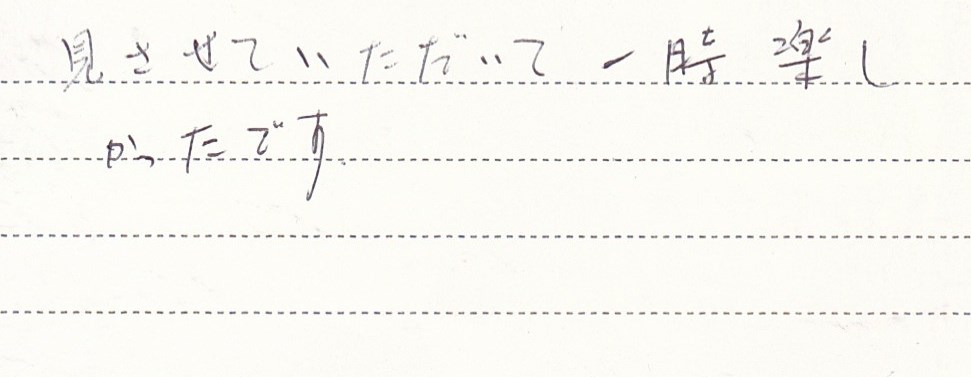 見させていただいて一時楽し
かったです